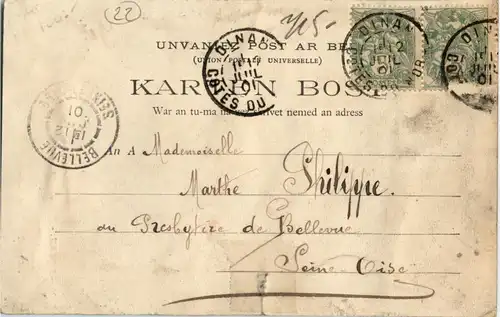 22
UNVANIEZ POST AR BE
(UNION POSTALE UNIVERSELLE)
KAR BOS
War an tu-ma nament adress
DINAN
JUIL
01
COTES DU
DINAN
12
JUIL
01
DINAN
12
JUIL
01
BELLEVUE
01
An A Mademoiselle
Marthe Philippe.
au Presbytère de Bellevue
Seine-Oise